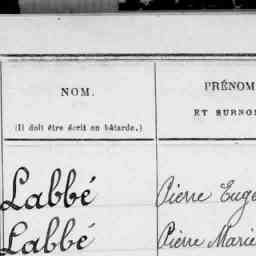 NOM.
PRÉNOM
ET SURNO
(Il doit être écrit en bâtarde.)
Labbé Pierre Euge
Labbé Pierre Marie